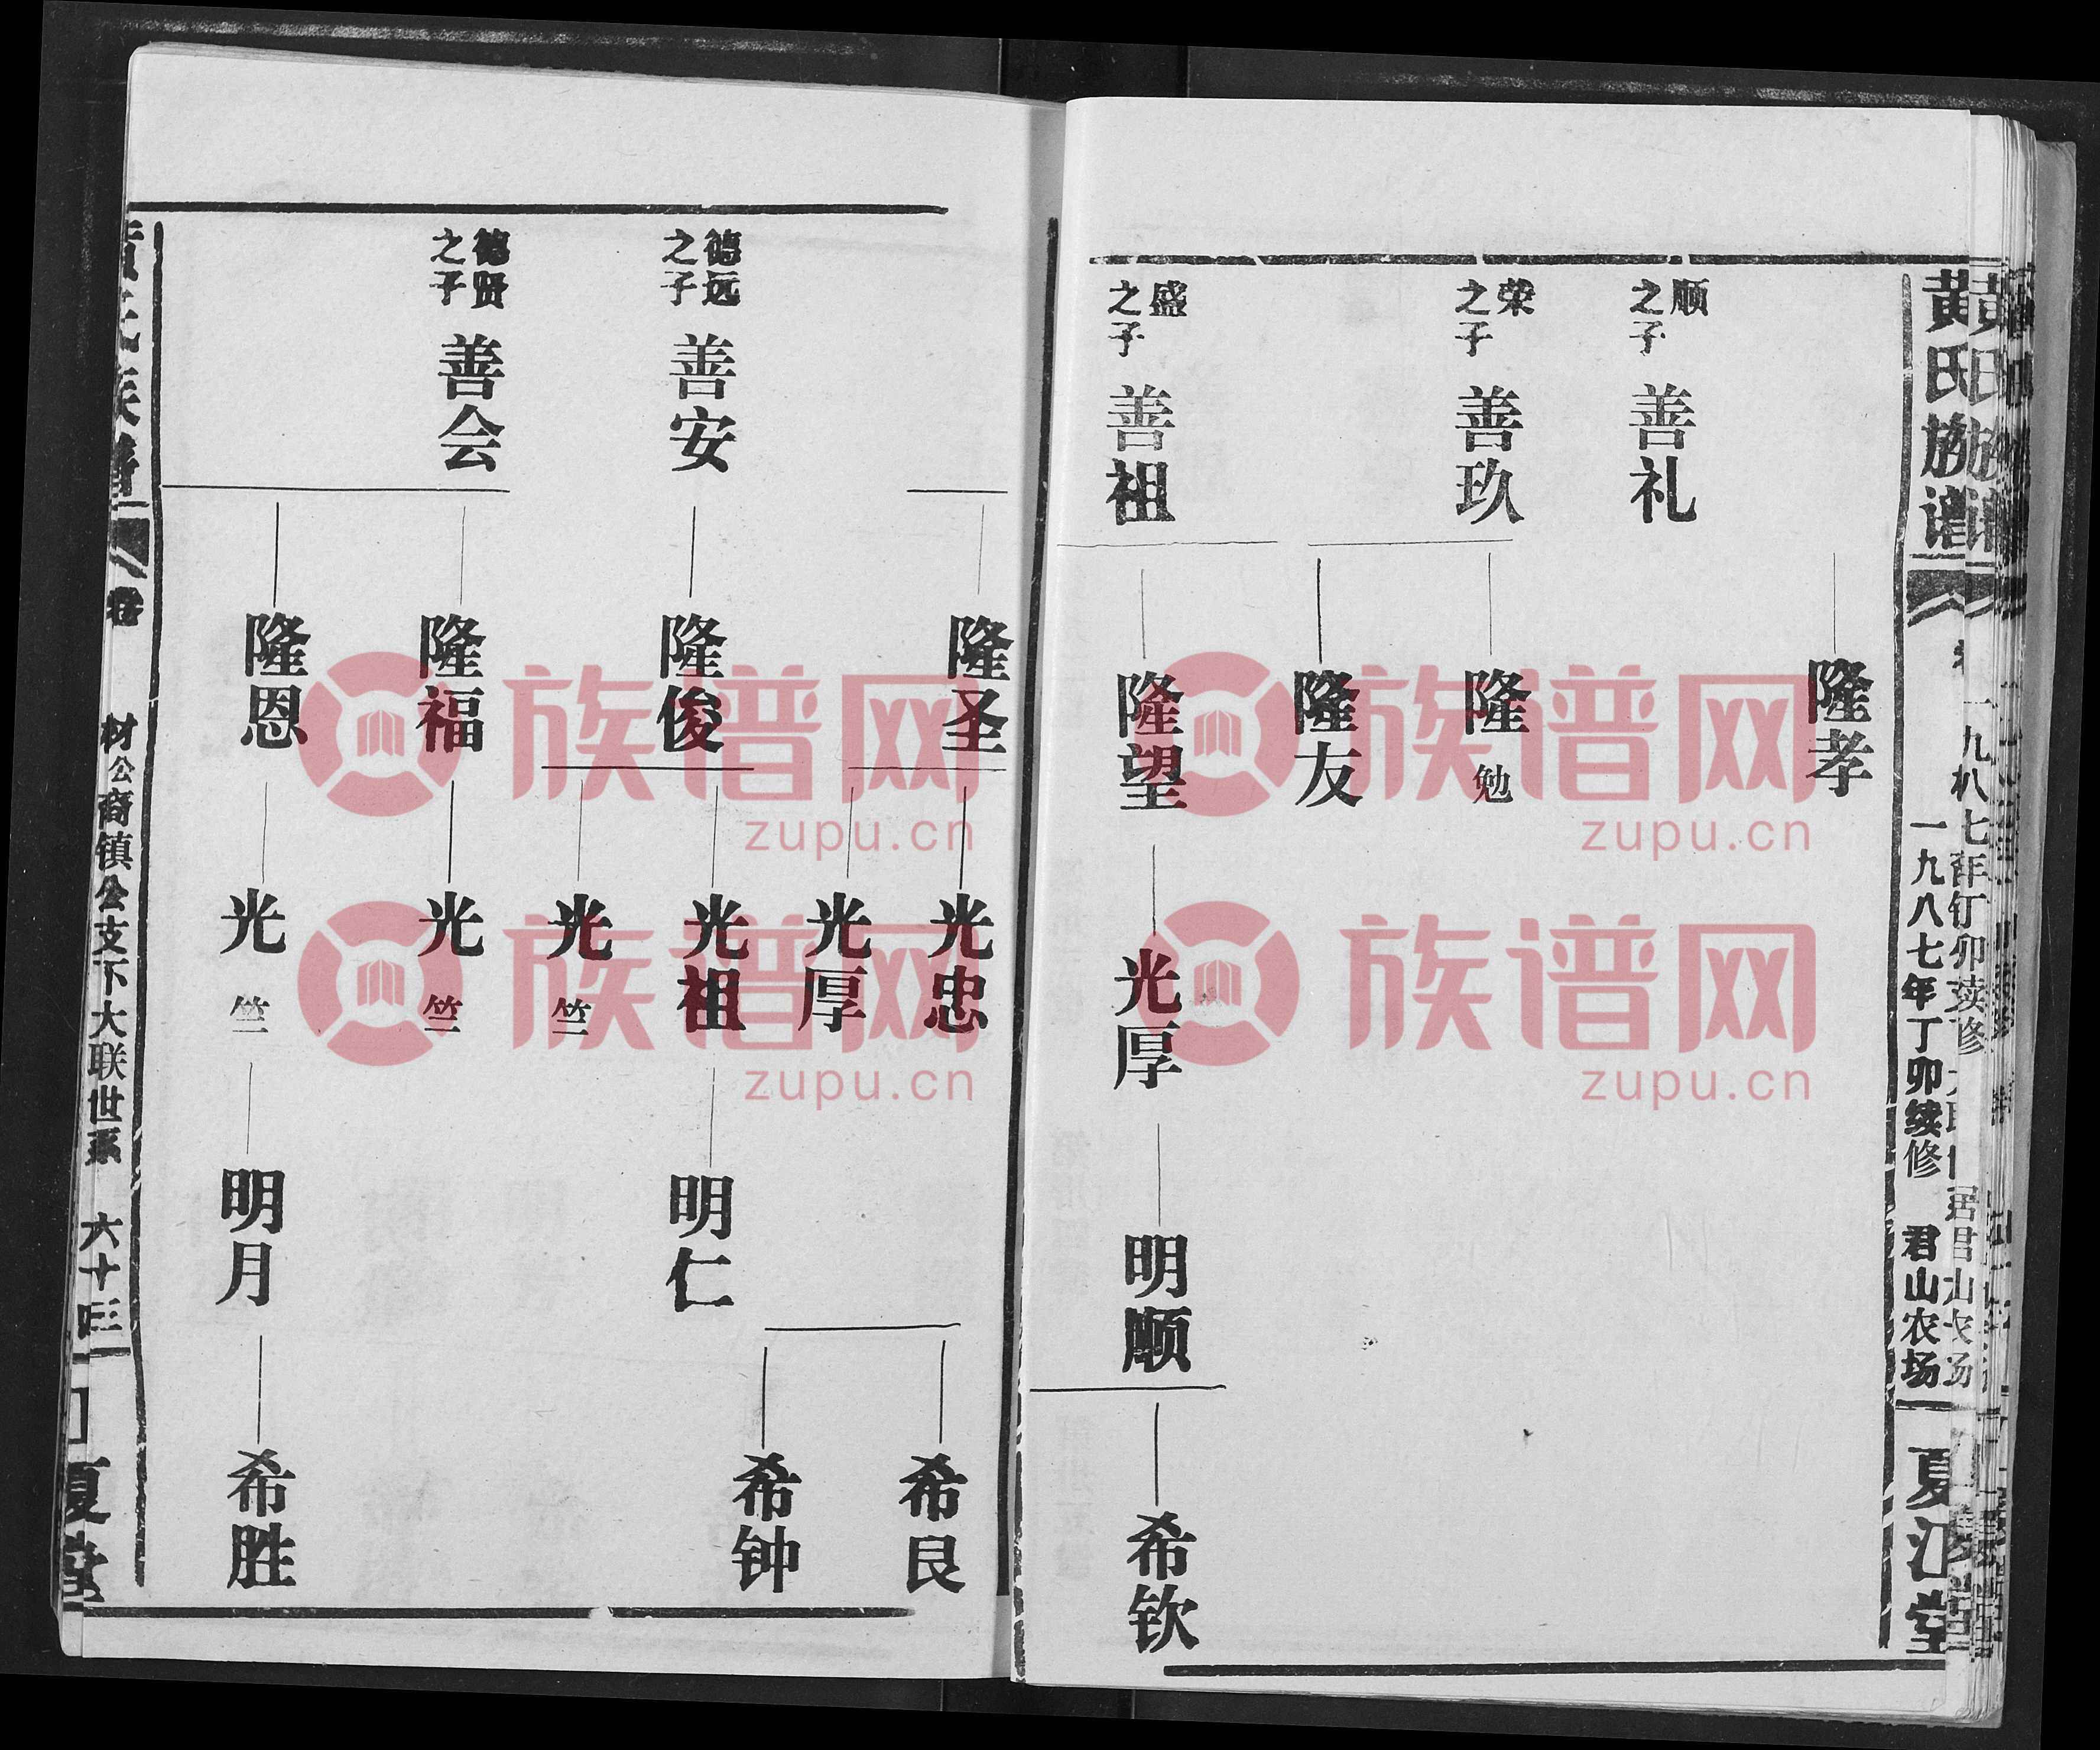 黄氏族谱
一九八七年丁卯续修 君山农场
夏江堂
隆孝
顺之子 善礼
荣之子 善玖
隆勉
隆友
盛之子 善祖
隆望
光厚
明顺
希钦
隆圣
光忠
光厚
德远之子 善安
隆俊
光祖
光竺
明仁
希良
希钟
德贤之子 善会
隆福
光竺
隆恩
光竺
明月
希胜
卷
材公裔镇公支下大联世系 六十三
夏堂
族谱网
zupu.cn
族谱网
zupu.cn
族谱网
zupu.cn
族谱网
zupu.cn